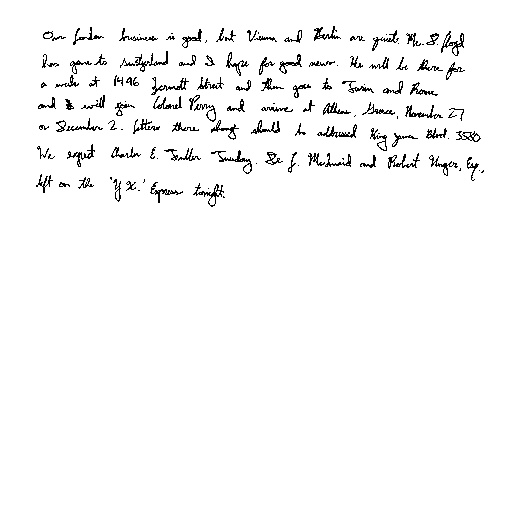 Our London business is good, but Vienna and Berlin are quiet. Mr. D. Lloyd
has gone to Switzerland and I hope for good news. He will be there for
a week at 1496 Zermott Street and then goes to Turin and Rome
and will join Colonel Parry and arrive at Athens, Greece, November 27
or December 2. Letters there should be addressed King James Blvd. 3580
We expect Charles E. Fuller Tuesday. Dr. L. McQuaid and Robert Unger, Esq.,
left on the 'Y.X.' Express tonight.